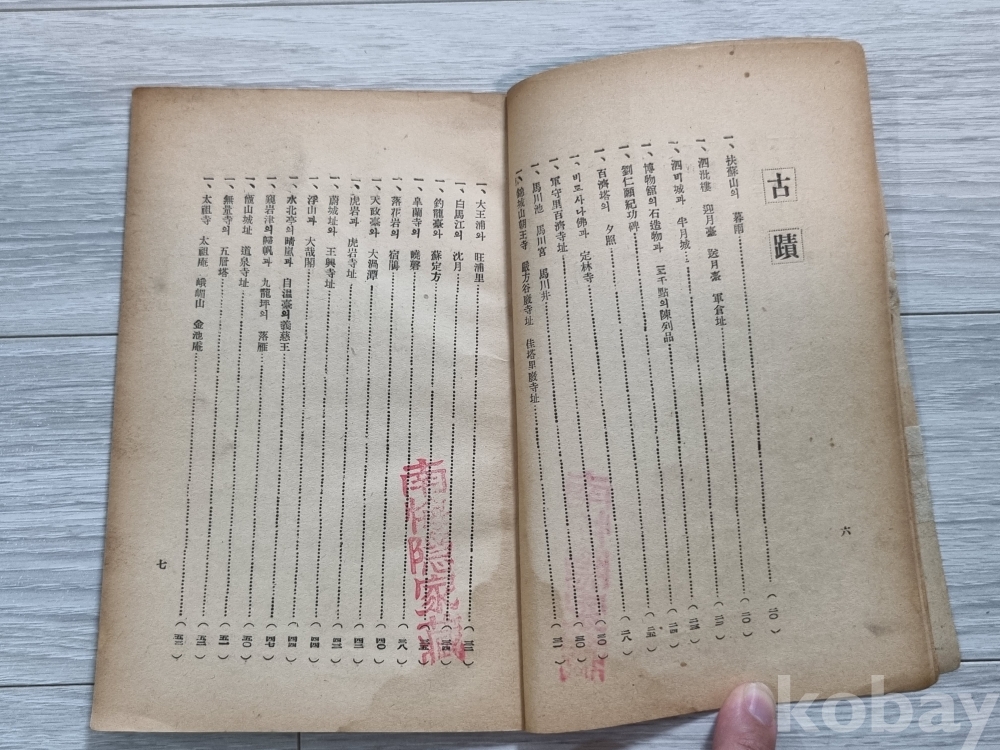 古蹟
一、扶蘇山의 暮雨 (二〇)
一、泗沘樓 迎月臺 送月臺 軍倉址 (二〇)
一、泗비城과 半月城
一、博物館의 石造物과 點의 陳列品
一、劉仁願紀功碑
一、百濟塔의 夕照 (二八)
一、비로사나佛과 定林寺 (三〇)
一、軍守里百濟寺址 (三〇)
一、馬川池 馬川宮 馬川井
一、錦城山朝王寺 嚴方谷廢寺址 佳塔里廢寺址 (三一)
六
一、大王浦와 旺浦里
一、白馬江의 沈月
一、釣龍臺와 蘇定方
一、皐蘭寺의 曉磬
一、落花岩의 宿鵑 (三八)
一、天政臺와 大渦潭 (四〇)
一、虎岩과 虎岩寺址
一、蔚城址와 王興寺址
一、浮山과 大哉閣 (四四)
一、水北亭의 晴嵐과 自溫臺의 義慈王 (四四)
一、窺岩津의 歸帆과 九龍坪의 落雁 (四七)
一、甑山城址 道泉寺址 (五〇)
一、無量寺의 五層塔 (五一)
一、太祖寺 太祖庵 峨嵋山 金池庵
七
kobay